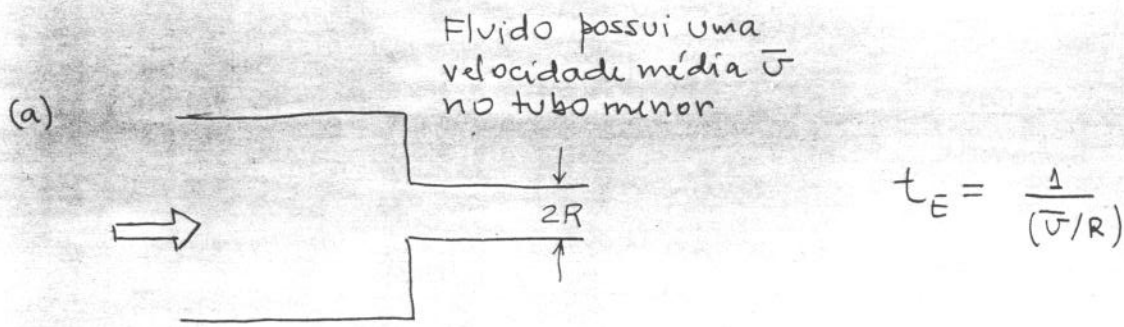 Fluido possui uma
velocidade média v̅
no tubo menor
(a)
2R
t_E = 1/(v̅/R)